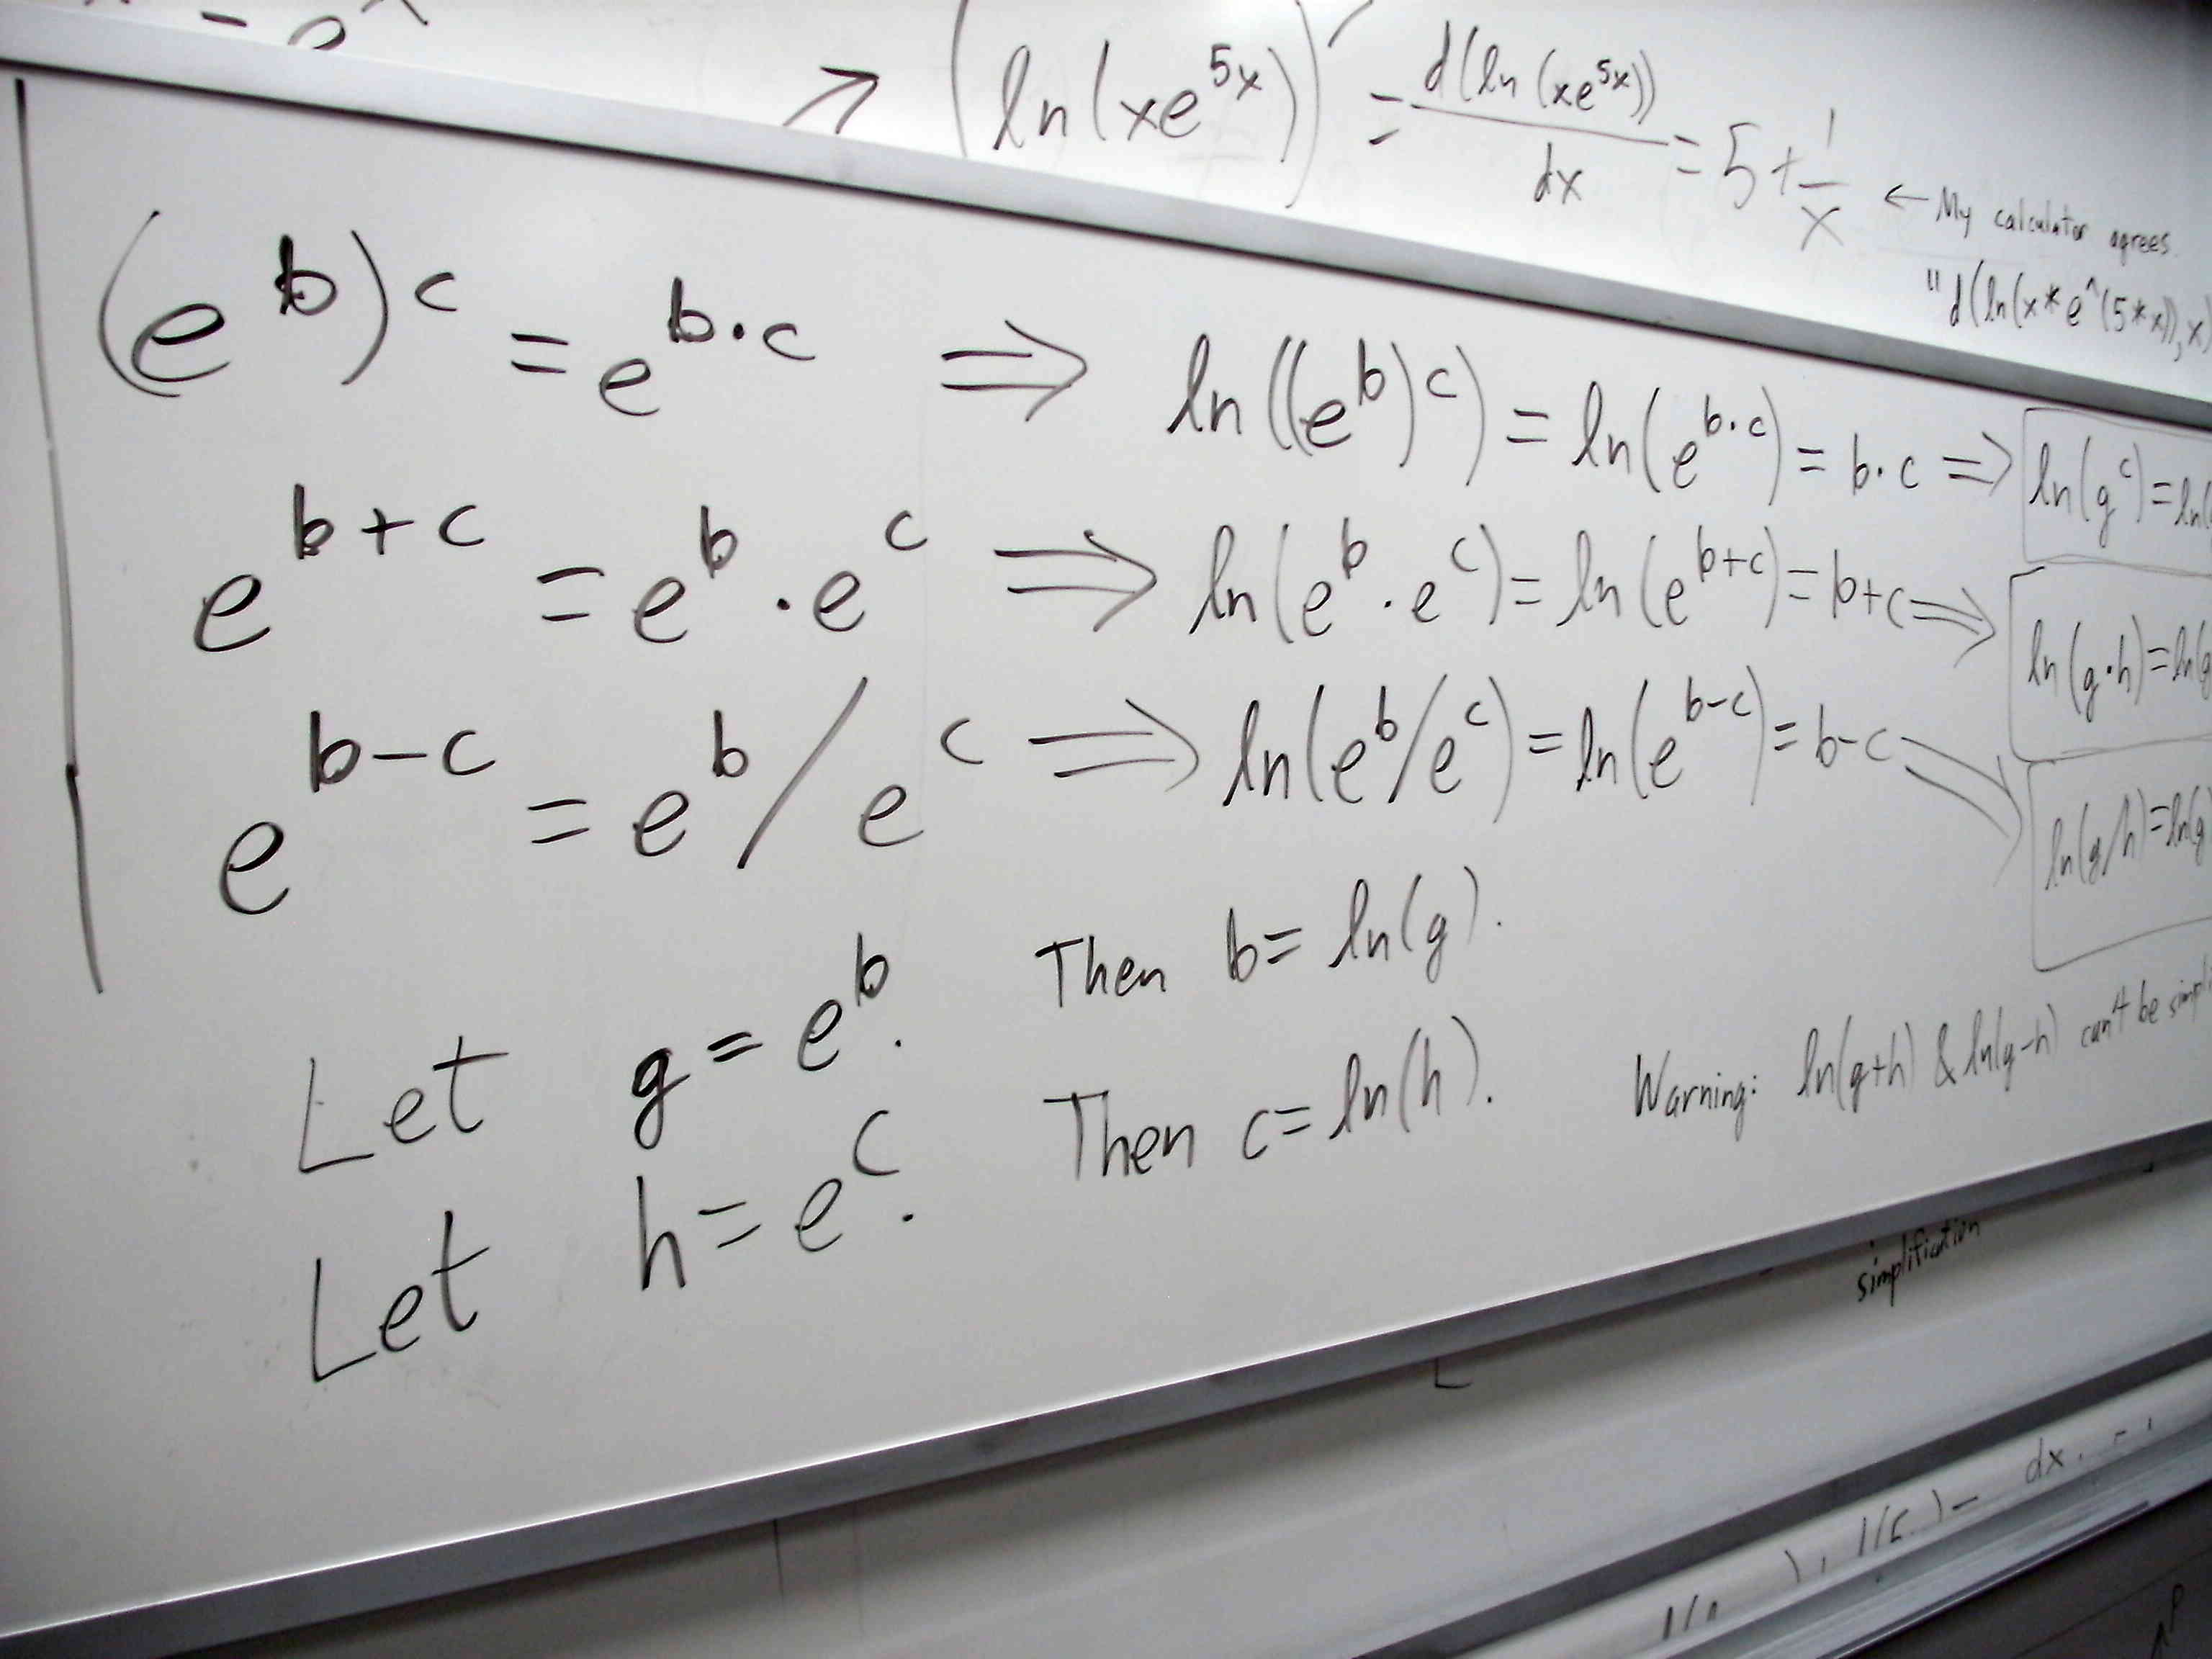 (ln(xe^{5x}))' = d(ln(xe^{5x}))/dx = 5 + 1/x ← My calculator agrees.
"d(ln(x*e^(5*x)),x)
(e^b)^c = e^{b·c} ⇒ ln((e^b)^c) = ln(e^{b·c}) = b·c ⇒ ln(g^c)=ln(
e^{b+c} = e^b · e^c ⇒ ln(e^b · e^c) = ln(e^{b+c}) = b+c ⇒ ln(g·h)=ln(g
e^{b-c} = e^b / e^c ⇒ ln(e^b/e^c) = ln(e^{b-c}) = b-c ⇒ ln(g/h)=ln(g)
Let g = e^b. Then b = ln(g).
Let h = e^c. Then c = ln(h).
Warning: ln(g+h) & ln(g-h) can't be simpli
simplification
dx